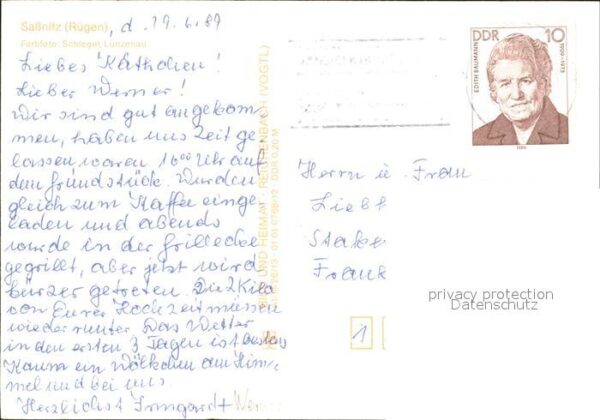 Saßnitz (Rügen), d. 19.6.89
Farbfoto: Schlegel, Lunzenau
Liebes Käthchen!
Lieber Werner!
Wir sind gut angekom
men, haben uns Zeit ge
lassen waren 16⁰⁰ Uhr auf
dem Grundstück. Wurden
gleich zum Kaffee einge
laden und abends
wurde in der Grillecke
gegrillt, aber jetzt wird
kürzer getreten. Die 2 Kilo
von Eurer Hochzeit müssen
wieder runter. Das Wetter
in den ersten 3 Tagen ist bestens
Kaum ein Wölkchen am Him-
mel und bei uns.
Herzlichst Irmgard + Werner
BILD UND HEIMAT REICHENBACH (VOGTL)
DDR 0,20 M
DDR 10
EDITH BAUMANN
1909-1973
1989
Herrn u. Frau
Liebh
Stake
Frank
privacy protection
Datenschutz
1